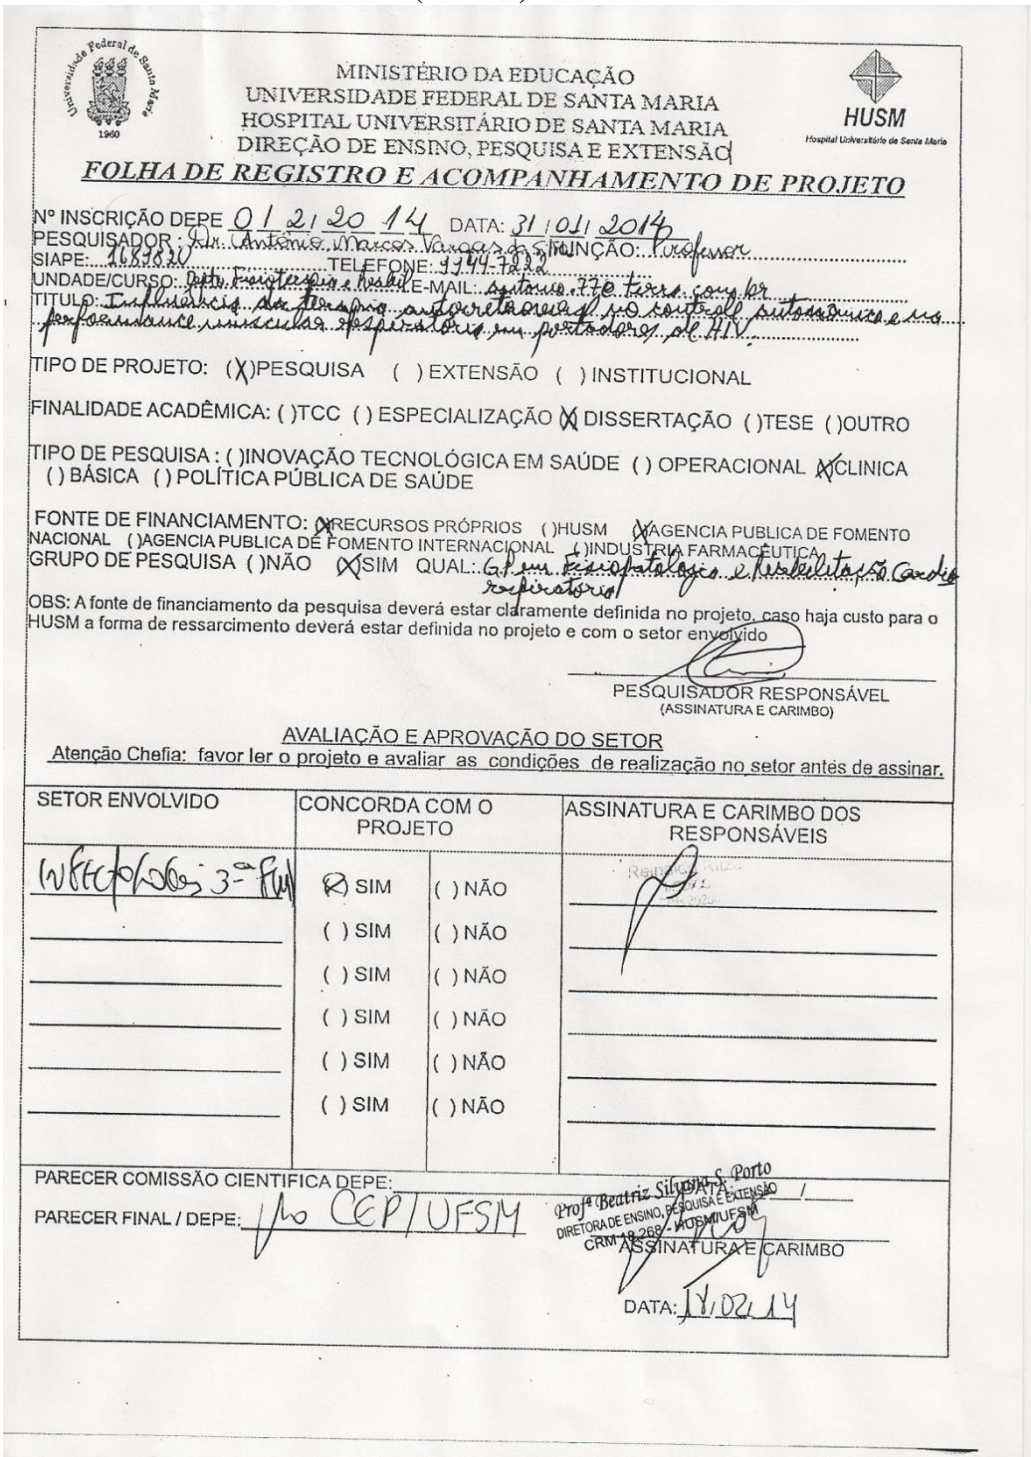 Universidade Federal de Santa Maria
1960
MINISTÉRIO DA EDUCAÇÃO
UNIVERSIDADE FEDERAL DE SANTA MARIA
HOSPITAL UNIVERSITÁRIO DE SANTA MARIA
DIREÇÃO DE ENSINO, PESQUISA E EXTENSÃO
HUSM
Hospital Universitário de Santa Maria
FOLHA DE REGISTRO E ACOMPANHAMENTO DE PROJETO
Nº INSCRIÇÃO DEPE 012/2014 DATA: 31/01/2014
PESQUISADOR: Dr. Antônio Marcos Vargas da Silva FUNÇÃO: Professor
SIAPE: 1689820 TELEFONE: 9944-7222
UNDADE/CURSO: Depto Fisioterapia e Reabil. E-MAIL: antonio.77@terra.com.br
TITULO: Influência da terapia antirretroviral no controle autonômico e na
performance muscular respiratória em portadores de HIV.
TIPO DE PROJETO: (X)PESQUISA ( ) EXTENSÃO ( ) INSTITUCIONAL
FINALIDADE ACADÊMICA: ( )TCC ( ) ESPECIALIZAÇÃO (X) DISSERTAÇÃO ( )TESE ( )OUTRO
TIPO DE PESQUISA : ( )INOVAÇÃO TECNOLÓGICA EM SAÚDE ( ) OPERACIONAL (X)CLINICA
( ) BÁSICA ( ) POLÍTICA PÚBLICA DE SAÚDE
FONTE DE FINANCIAMENTO: (X)RECURSOS PRÓPRIOS ( )HUSM (X)AGENCIA PUBLICA DE FOMENTO
NACIONAL ( )AGENCIA PUBLICA DE FOMENTO INTERNACIONAL ( )INDUSTRIA FARMACÊUTICA
GRUPO DE PESQUISA ( )NÃO (X)SIM QUAL: GP em Fisiopatologia e Reabilitação Cardio
respiratória
OBS: A fonte de financiamento da pesquisa deverá estar claramente definida no projeto, caso haja custo para o
HUSM a forma de ressarcimento deverá estar definida no projeto e com o setor envolvido
PESQUISADOR RESPONSÁVEL
(ASSINATURA E CARIMBO)
AVALIAÇÃO E APROVAÇÃO DO SETOR
Atenção Chefia: favor ler o projeto e avaliar as condições de realização no setor antes de assinar.
SETOR ENVOLVIDO
CONCORDA COM O
PROJETO
ASSINATURA E CARIMBO DOS
RESPONSÁVEIS
Infectologia 3ª
(X) SIM ( ) NÃO
( ) SIM ( ) NÃO
( ) SIM ( ) NÃO
( ) SIM ( ) NÃO
( ) SIM ( ) NÃO
( ) SIM ( ) NÃO
PARECER COMISSÃO CIENTIFICA DEPE: DATA: / /
Profª Beatriz Silvana S. Porto
DIRETORA DE ENSINO, PESQUISA E EXTENSÃO
CRM 18.268 - HUSM/UFSM
PARECER FINAL / DEPE: CEP/UFSM
ASSINATURA E CARIMBO
DATA: 02/14